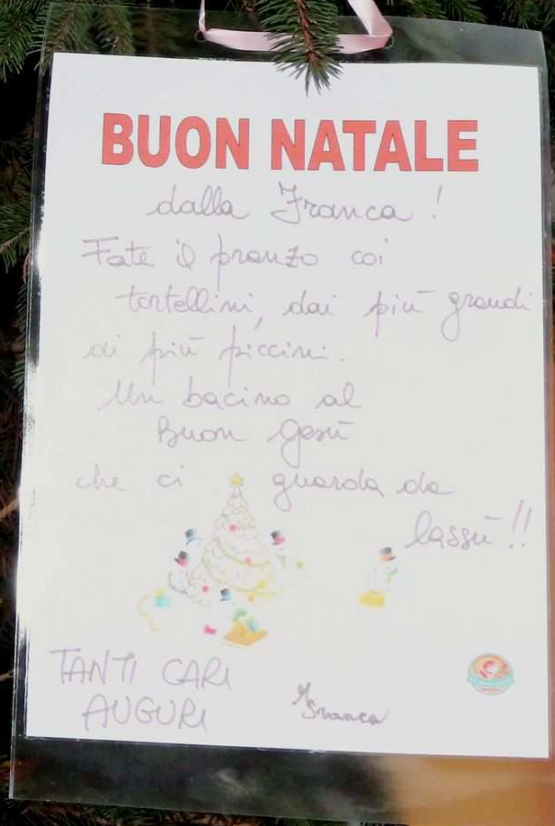 BUON NATALE
dalla Franca!
Fate il pranzo coi
tortellini, dai più grandi
ai più piccini.
Un bacino al
Buon Gesù
che ci guarda da
lassù!!
TANTI CARI
AUGURI
Franca